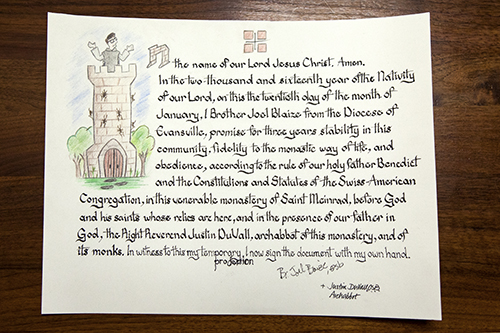 In the name of our Lord Jesus Christ. Amen.
In the two-thousand and sixteenth year of the Nativity
of our Lord, on this the twentieth day of the month of
January, I Brother Joel Blaize from the Diocese of
Evansville, promise for three years stability in this
community, fidelity to the monastic way of life, and
obedience, according to the rule of our holy father Benedict
and the Constitutions and Statutes of the Swiss-American
Congregation, in this venerable monastery of Saint Meinrad, before God
and his saints whose relics are here, and in the presence of our father in
God, the Right Reverend Justin DuVall, archabbot of this monastery, and of
its monks. In witness to this my temporary, I now sign the document with my own hand.
profession
Br. Joel Blaize, OSB
+ Justin DuVall, OSB
Archabbot